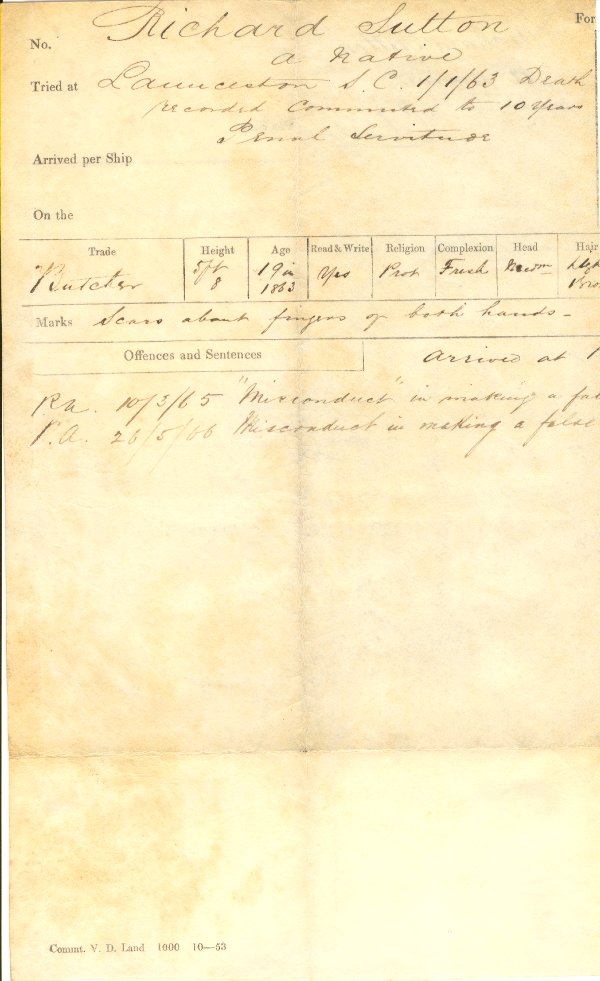 Richard Sutton
For
No.
a Native
Tried at Launceston S.C. 1/1/63 Death
recorded Commuted to 10 Years
Penal Servitude
Arrived per Ship
On the
Trade Height Age Read & Write Religion Complexion Head Hair
Butcher 5 ft 8 19 in 1863 Yes Prot Fresh Medm
Marks Scars about fingers of both hands -
Offences and Sentences arrived at
P.A. 10/3/65 "Misconduct" in making a
P.A. 26/5/66 Misconduct in making a false
Commt. V. D. Land 1000 10—53